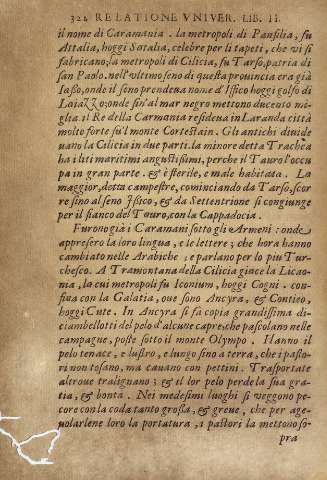 322 RELATIONE VNIVER. LIB. II.
il nome di Caramania . la metropoli di Panfilia, fu
Attalia, hoggi Satalia, celebre per li tapeti, che vi si
fabricano; la metropoli di Cilicia, fu Tarso, patria di
san Paolo. nell'vltimo seno di questa prouincia era già
Iasso, onde il seno prendeua nome d'Issico hoggi golfo di
Laiazzo; onde sin'al mar negro mettono ducento mi-
glia. il Re della Carmania resideua in Laranda città
molto forte su'l monte Cortestain. Gli antichi diuide
uano la Cilicia in due parti. la minore detta Trachea
ha i liti maritimi angustissimi, perche il Tauro l'occu
pa in gran parte . & è sterile, e male habitata . La
maggior, detta campestre, cominciando da Tarso, scor
re sino al seno Issico, & da Settentrione si congiunge
per il fianco del Tauro, con la Cappadocia .
Furono già i Caramani sotto gli Armeni : onde
appresero la loro lingua , e le lettere ; che hora hanno
cambiato nelle Arabiche ; e parlano per lo piu Tur-
chesco. A Tramontana della Cilicia giace la Licao-
nia , la cui metropoli fu Iconium, hoggi Cogni . con-
fina con la Galatia, oue sono Ancyra, & Contieo,
hoggi Cute . In Ancyra si fa copia grandissima di
ciambellotti del pelo d'alcune capre, che pascolano nelle
campagne, poste sotto il monte Olympo . Hanno il
pelo tenace, e lustro, e lungo sino a terra, che i pasto-
ri non tosano, ma cauano con pettini . Trasportate
altroue tralignano ; & el lor pelo perde la sua gra-
tia, & bonta . Nei medesimi luoghi si veggono pe-
core con la coda tanto grossa, & greue , che per age-
uolarlene loro la portatura , i pastori la mettono so-
pra